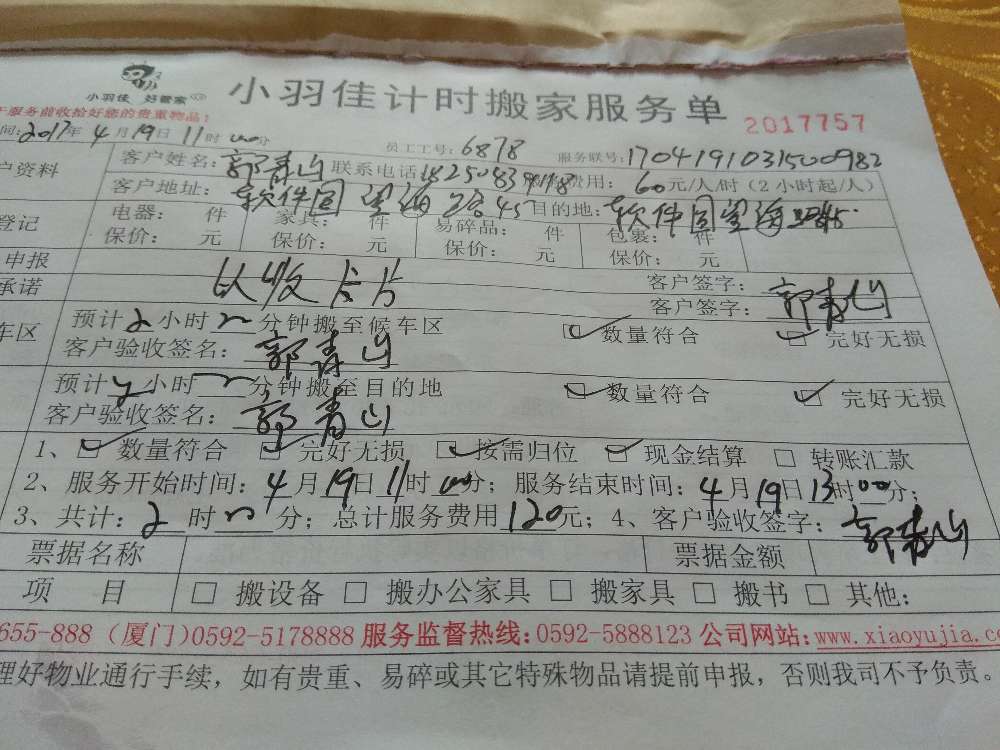 小羽佳 好管家
小羽佳计时搬家服务单
2017757
服务前收拾好您的贵重物品!
间:2017年4月19日11时00分 员工工号:6878 服务联号:17041910315000982
户资料 客户姓名:郭青山 联系电话 费用:60元/人/时(2小时起/人)
客户地址:软件园望海 目的地:软件园望海
登记 电器: 件 家具: 件 易碎品: 件 包裹: 件
保价: 元 保价: 元 保价: 元 保价: 元
申报 客户签字:
承诺 卡片 客户签字:郭青山
车区 预计2小时 分钟搬至候车区 数量符合 完好无损
客户验收签名:郭青山
预计 小时 分钟搬至目的地 数量符合 完好无损
客户验收签名:郭青山
1、 数量符合 完好无损 按需归位 现金结算 转账汇款
2、服务开始时间:4月19日11时00分;服务结束时间:4月19日13时00分;
3、共计:2时 分;总计服务费用120元;4、客户验收签字:郭青山
票据名称 票据金额
项 目 搬设备 搬办公家具 搬家具 搬书 其他:
655-888 (厦门)0592-5178888 服务监督热线:0592-5888123 公司网站:www.xiaoyujia.c
理好物业通行手续,如有贵重、易碎或其它特殊物品请提前申报,否则我司不予负责。